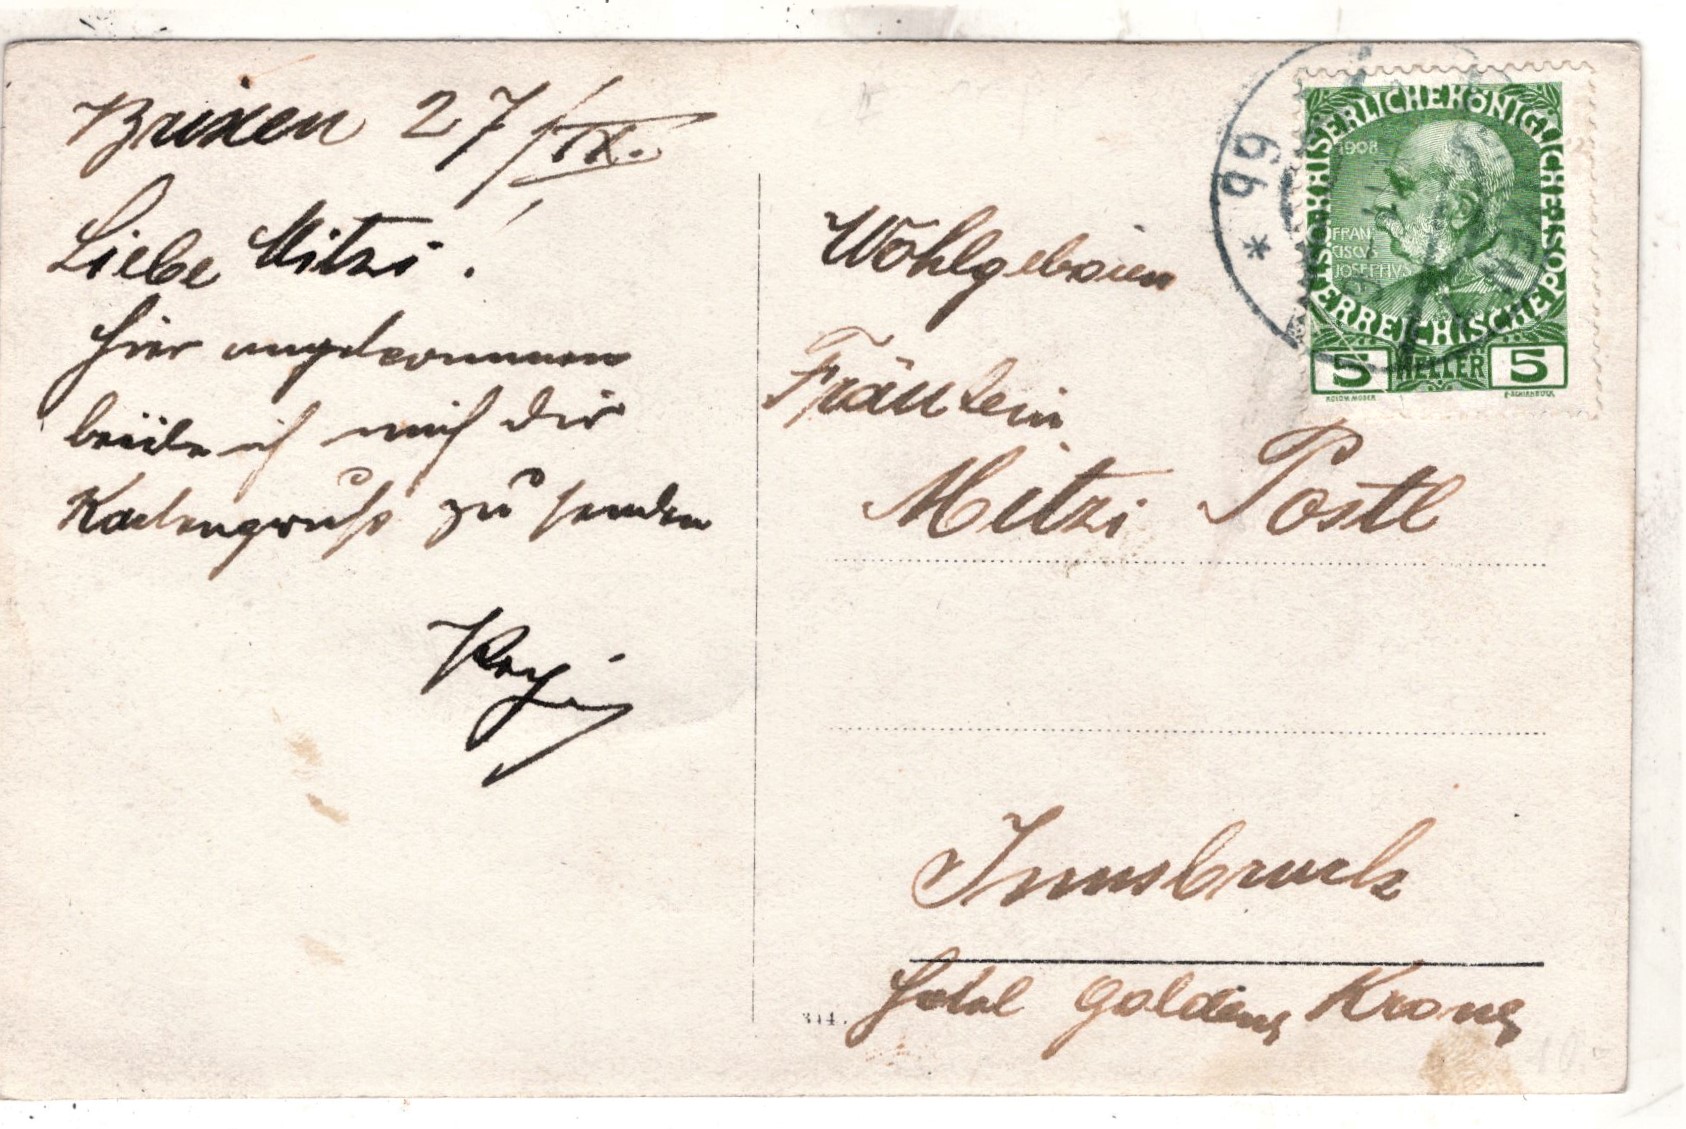 Brixen 27/IX.
Liebe Mitzi!
hier angekommen
beeile ich mich dir
Kartengruß zu senden
Wohlgeboren
Fräulein
Mitzi Postl
Innsbruck
Hotel goldene Krone
314.
* 99
KAISERLICHE KÖNIGLICHE ÖSTERREICHISCHE POST
1908
FRAN
CISCVS
JOSEPHVS
5 HELLER 5